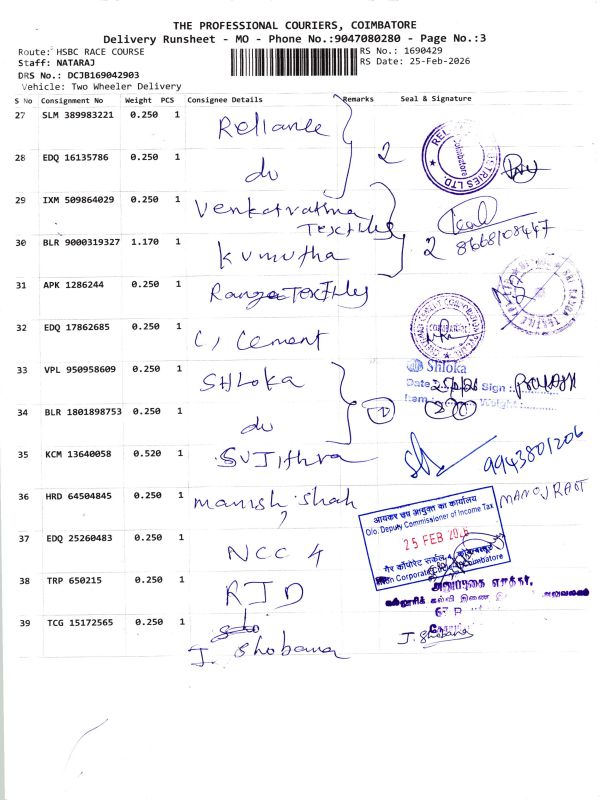 THE PROFESSIONAL COURIERS, COIMBATORE
Delivery Runsheet - MO - Phone No.:9047080280 - Page No.:3
Route: HSBC RACE COURSE
RS No.: 1690429
Staff: NATARAJ
RS Date: 25-Feb-2026
DRS No.: DCJB169042903
Vehicle: Two Wheeler Delivery
S No Consignment No Weight PCS Consignee Details Remarks Seal & Signature
27 SLM 389983221 0.250 1 Reliance
28 EDQ 16135786 0.250 1 do 2
29 IXM 509864029 0.250 1 Venkatrathna
Textiles
30 BLR 9000319327 1.170 1 Kumutha 2 8668108447
31 APK 1286244 0.250 1 Ranga Textiles
32 EDQ 17862685 0.250 1 C, Cement
COIMBATORE
33 VPL 950958609 0.250 1 Shloka
Shloka
Date Sign :
Item Weight:
34 BLR 1801898753 0.250 1 do
35 KCM 13640058 0.520 1 Sujithra 9943801206
36 HRD 64504845 0.250 1 Manish shah
आयकर उप आयुक्त का कार्यालय
O/o. Deputy Commissioner of Income Tax
25 FEB 2026
37 EDQ 25260483 0.250 1 NCC 4
38 TRP 650215 0.250 1 RJD
39 TCG 15172565 0.250 1
J. Shobana
J. Shobana